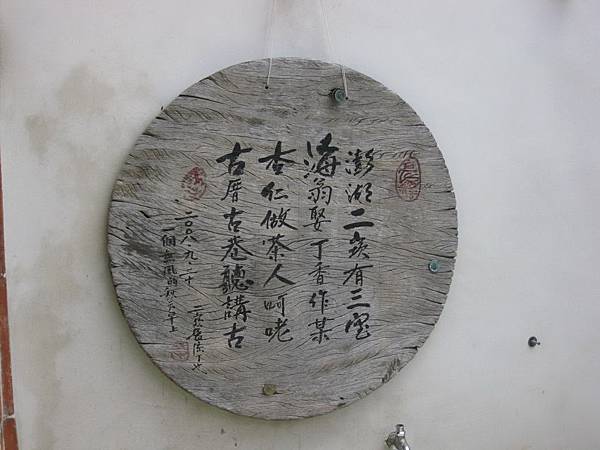 澎湖二崁有三寶
海翁娶丁香作某
杏仁做茶人呵咾
古厝古巷聽講古
二〇〇八、九、二十
一個無風的秋天早上